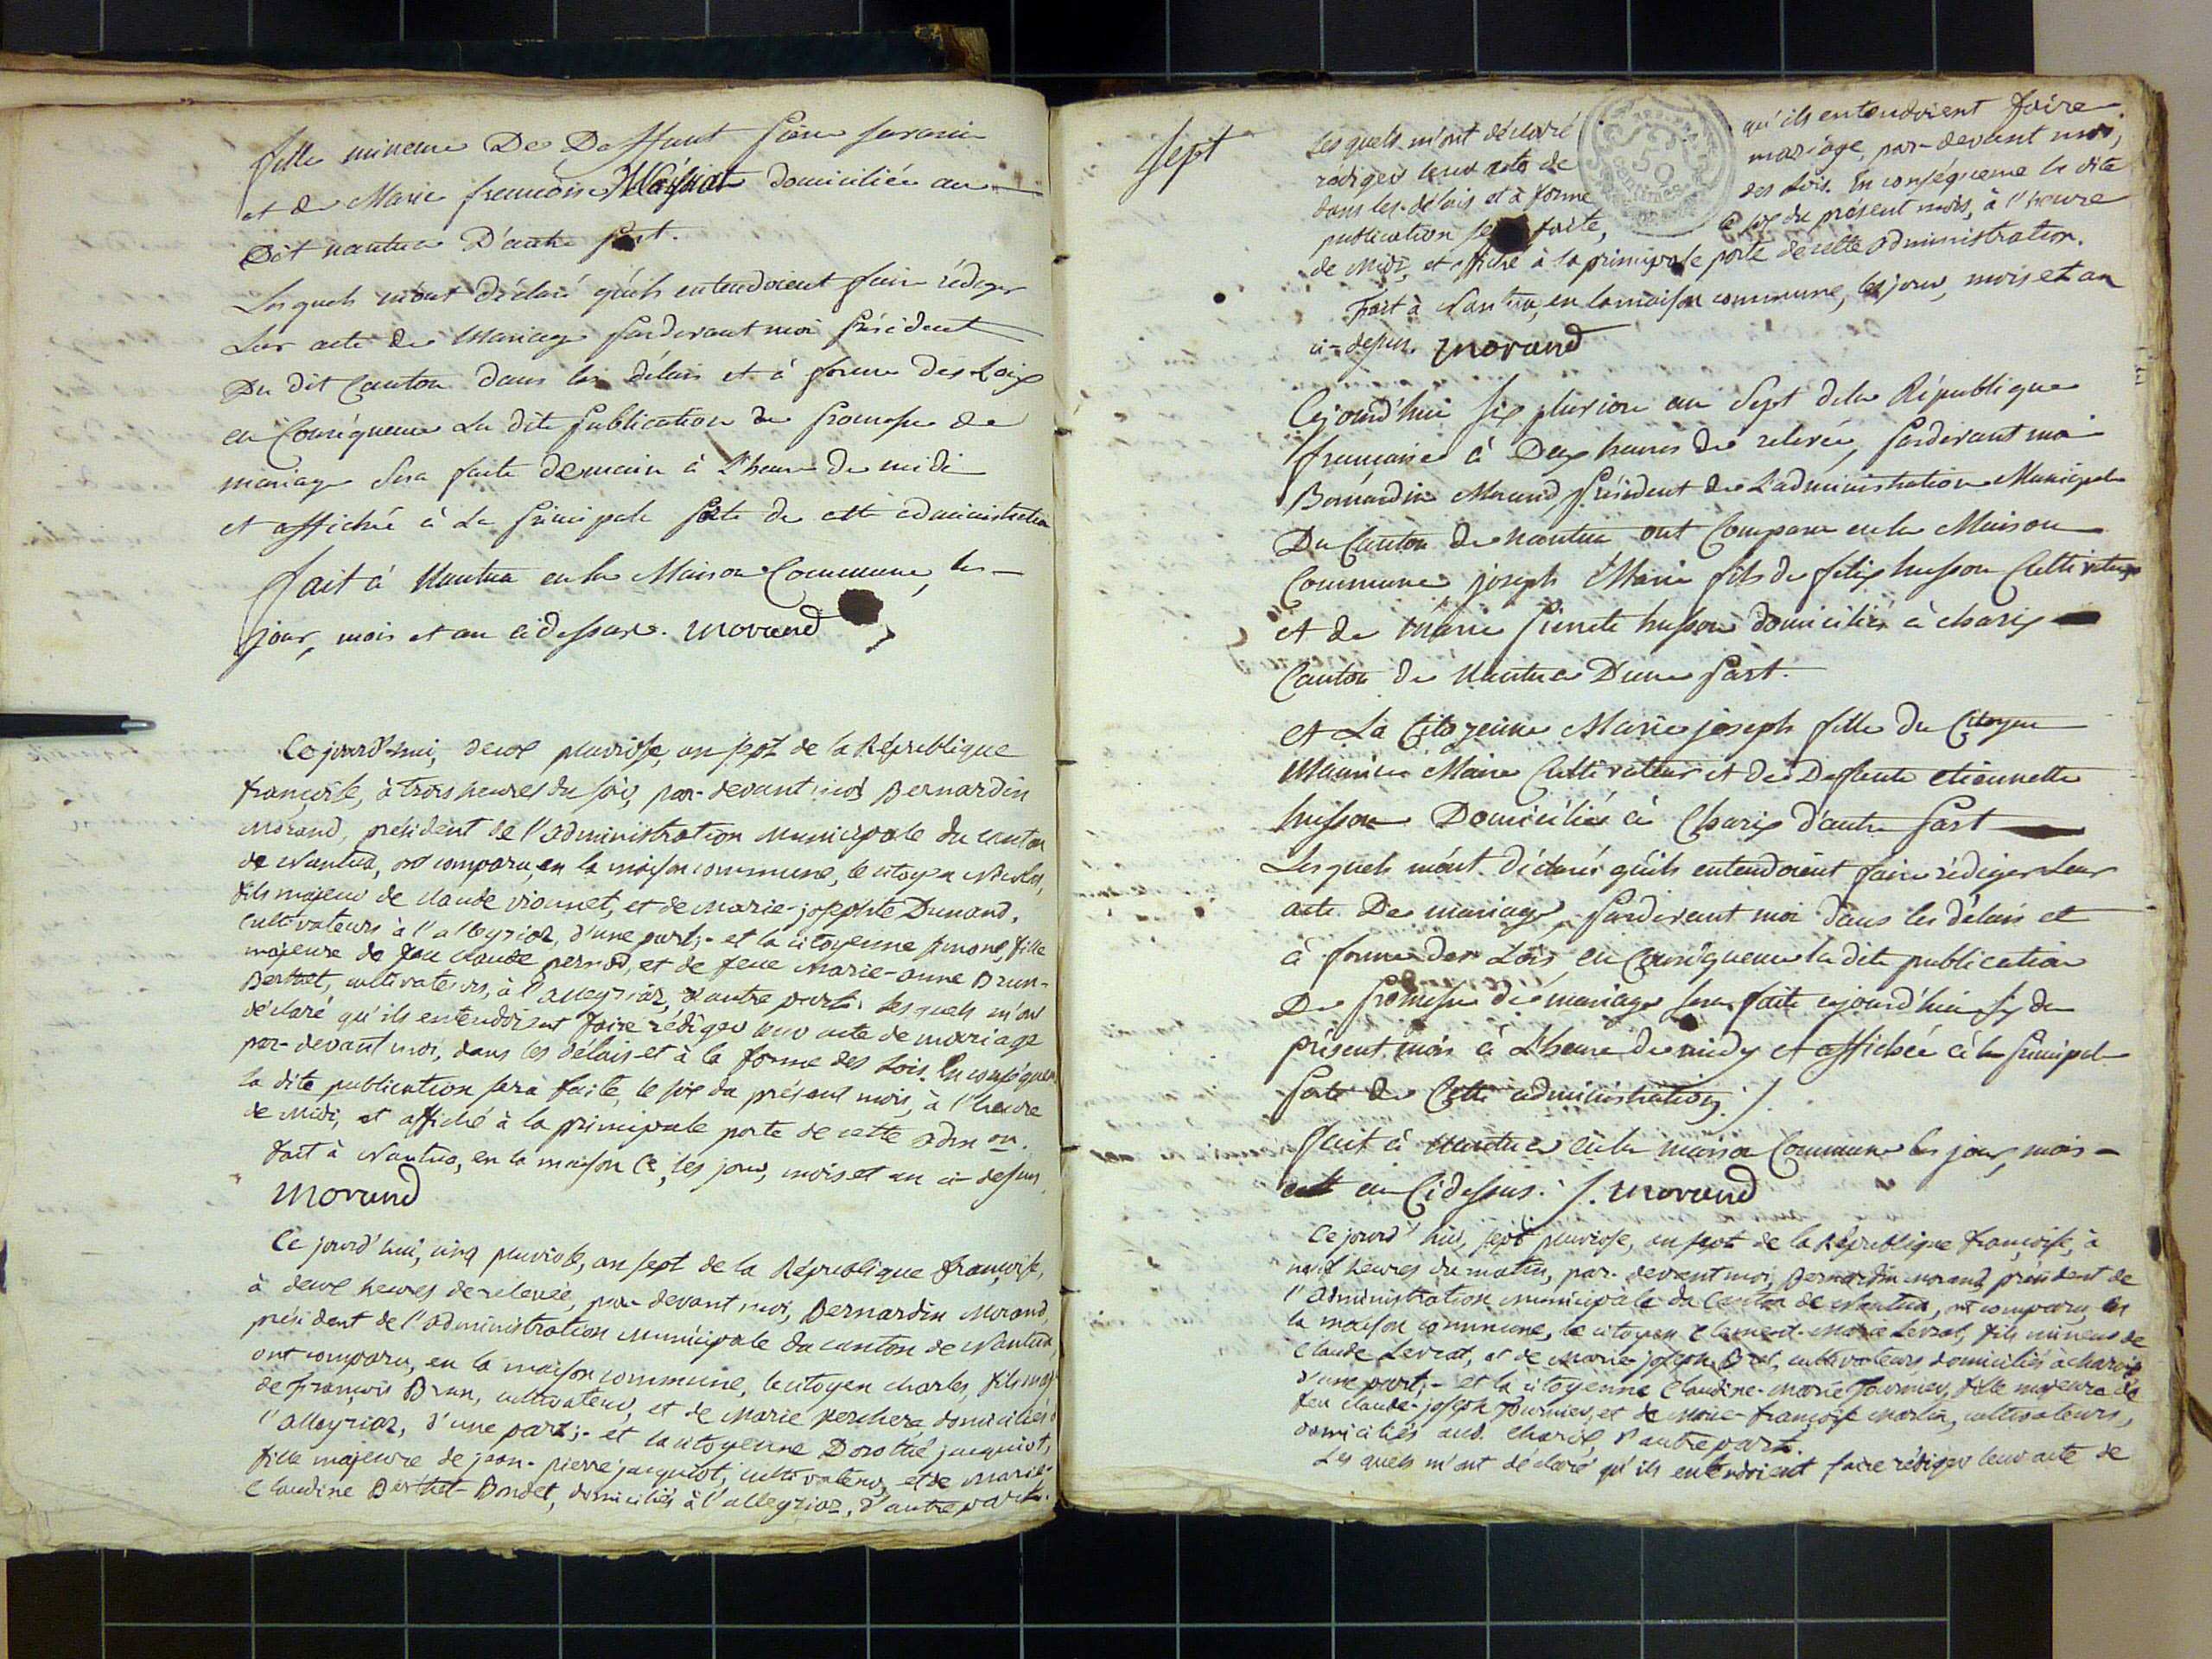 fille mineure De Deffunt
et de Marie francoise domiciliée au
Dit nantua D'autre part.
Les quels m'ont déclaré qu'ils entendoient faire rédiger
Leur acte de Mariage pardevant moi président
Du dit Canton dans les délais et à forme des Loix
en Conséquence La dite publication de promesse de
mariage sera faite demain à L'heure de midi
et affichée à La principale porte de cette administration
fait à Nantua en la Maison Commune, les
jour, mois et an cidessus. Morand
Ce jourd'hui, deux pluviose, an sept de la République
françoise, à trois heures du soir, par-devant moi Bernardin
Morand, président de l'administration Municipale du canton
de Nantua, ont comparu, en la maison commune, le citoyen Nicolas,
fils majeur de claude vionnet, et de marie-josephte Dunand,
cultivateurs à l'alleyriaz, d'une part; - et la citoyenne simone, fille
majeure de feu claude pernod, et de feue Marie-anne Brun-
Berthet, cultivateurs, à l'alleyriaz, d'autre part. Les quels m'ont
déclaré qu'ils entendoient faire rédiger leur acte de mariage
par-devant moi, dans les délais et à la forme des Lois. En conséquence
la dite publication sera faite, le six du présent mois, à l'heure
de Midi, et affiché à la principale porte de cette adm on.
fait à Nantua, en la maison Ce, les jour, mois et an ci-dessus
Morand
Ce jourd'hui, cinq pluviose, an sept de la République françoise,
à deux heures de relevée, par-devant moi, Bernardin Morand,
président de l'administration Municipale du canton de Nantua,
ont comparu, en la maison commune, le citoyen charles, fils maj
de françois Brun, cultivateur, et de Marie perchera domiciliés
l'alleyriaz, d'une part; - et la citoyenne Dorothé jacquiot,
fille majeure de jean-pierre jacquiot, cultivateur, et de marie-
claudine Berthet-Bondet, domiciliés à l'alleyriaz, d'autre part.
sept
Les quels m'ont déclaré qu'ils entendoient faire
rédiger leur acte de mariage, par-devant moi,
dans les délais et à forme des Lois. En conséquence la dite
publication faite, le six du présent mois, à l'heure
de Midi, et affiché à la principale porte de cette administration.
50
centimes
Fait à Nantua, en la maison commune, les jour, mois et an
ci-dessus. Morand
Cejourd'hui six pluviose an Sept de la République
francaise à Deux heures de relevée, pardevant moi
Bernardin Morand, président de L'administration Municipale
Du Canton de nantua ont Comparu en la Maison
Commune, joseph Marie fils de felix husson Cultivateur
et de Marie pierrete husson domiciliés à charix
Canton de Nantua Dune part.
et La Citoyenne Marie joseph fille du Citoyen
Maurice Maire Cultivateur et de Deffunte etiennette
husson Domiciliés à Charix d'autre part
Les quels m'ont déclarés qu'ils entendoient faire rédiger Leur
acte De mariage, pardevant moi dans les délais et
à forme des Lois en Conséquence la dite publication
De promesse de mariage sera faite cejourd'hui six du
présent mois à L'heure de midy et affichée à la principale
porte de Cette administration ./.
fait à Nantua en la maison Commune les jour, mois
et an Cidessus. /. Morand
Ce jourd'hui, sept pluviose, an sept de la République françoise, à
neuf heures du matin, par-devant moi, Bernardin morand, président de
l'Administration municipale du Canton de Nantua, ont comparu, en
la maison commune, le citoyen Clement-Marie Levrat, fils mineur de
Claude Levrat, et de Marie-joseph Bret, cultivateurs domiciliés à charix
d'une part; - et la citoyenne Claudine-Marie fournier, fille majeure de
feu claude-joseph fournier, et de Marie-françoise Martin, cultivateurs,
domiciliés aud. charix, d'autre part.
Les quels m'ont déclaré qu'ils entendoient faire rédiger leur acte de